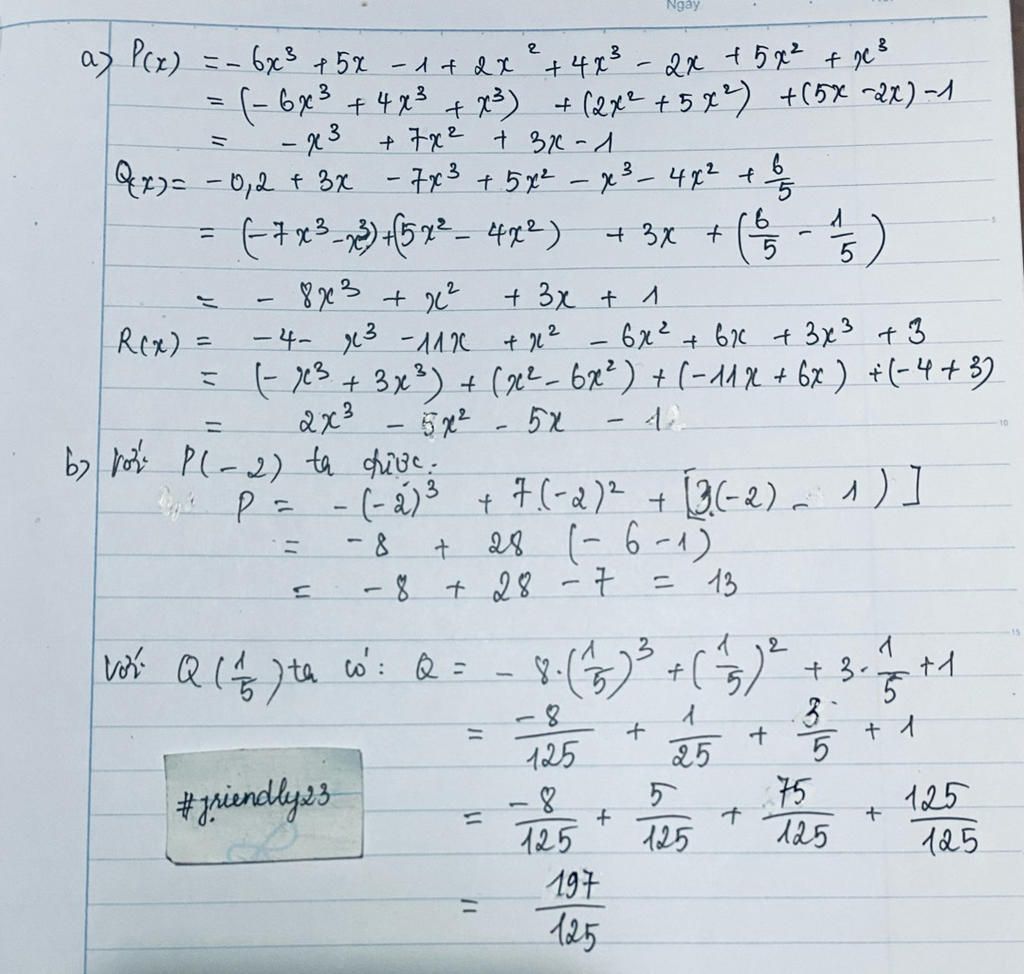 Ngày
a) P(x) = - 6x³ + 5x - 1 + 2x² + 4x³ - 2x + 5x² + x³
= (- 6x³ + 4x³ + x³) + (2x² + 5x²) + (5x - 2x) - 1
= - x³ + 7x² + 3x - 1
Q(x) = - 0,2 + 3x - 7x³ + 5x² - x³ - 4x² + 6/5
= (-7x³ - x³) + (5x² - 4x²) + 3x + (6/5 - 1/5)
= - 8x³ + x² + 3x + 1
R(x) = - 4 - x³ - 11x + x² - 6x² + 6x + 3x³ + 3
= (- x³ + 3x³) + (x² - 6x²) + (-11x + 6x) + (-4 + 3)
= 2x³ - 5x² - 5x - 1
b) Với P(-2) ta được:
P = - (-2)³ + 7.(-2)² + [3.(-2) - 1)]
= - 8 + 28 (- 6 - 1)
= - 8 + 28 - 7 = 13
Với Q(1/5) ta có: Q = - 8.(1/5)³ + (1/5)² + 3.1/5 + 1
= -8/125 + 1/25 + 3/5 + 1
= -8/125 + 5/125 + 75/125 + 125/125
= 197/125
#friendly23
5
10
15